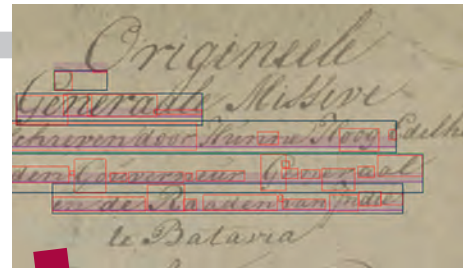 Originele
Generaale Missive
chreven door Hunne Hoog Edelh
den Gouverneur Generaal
en de Raaden van Indie
te Batavia